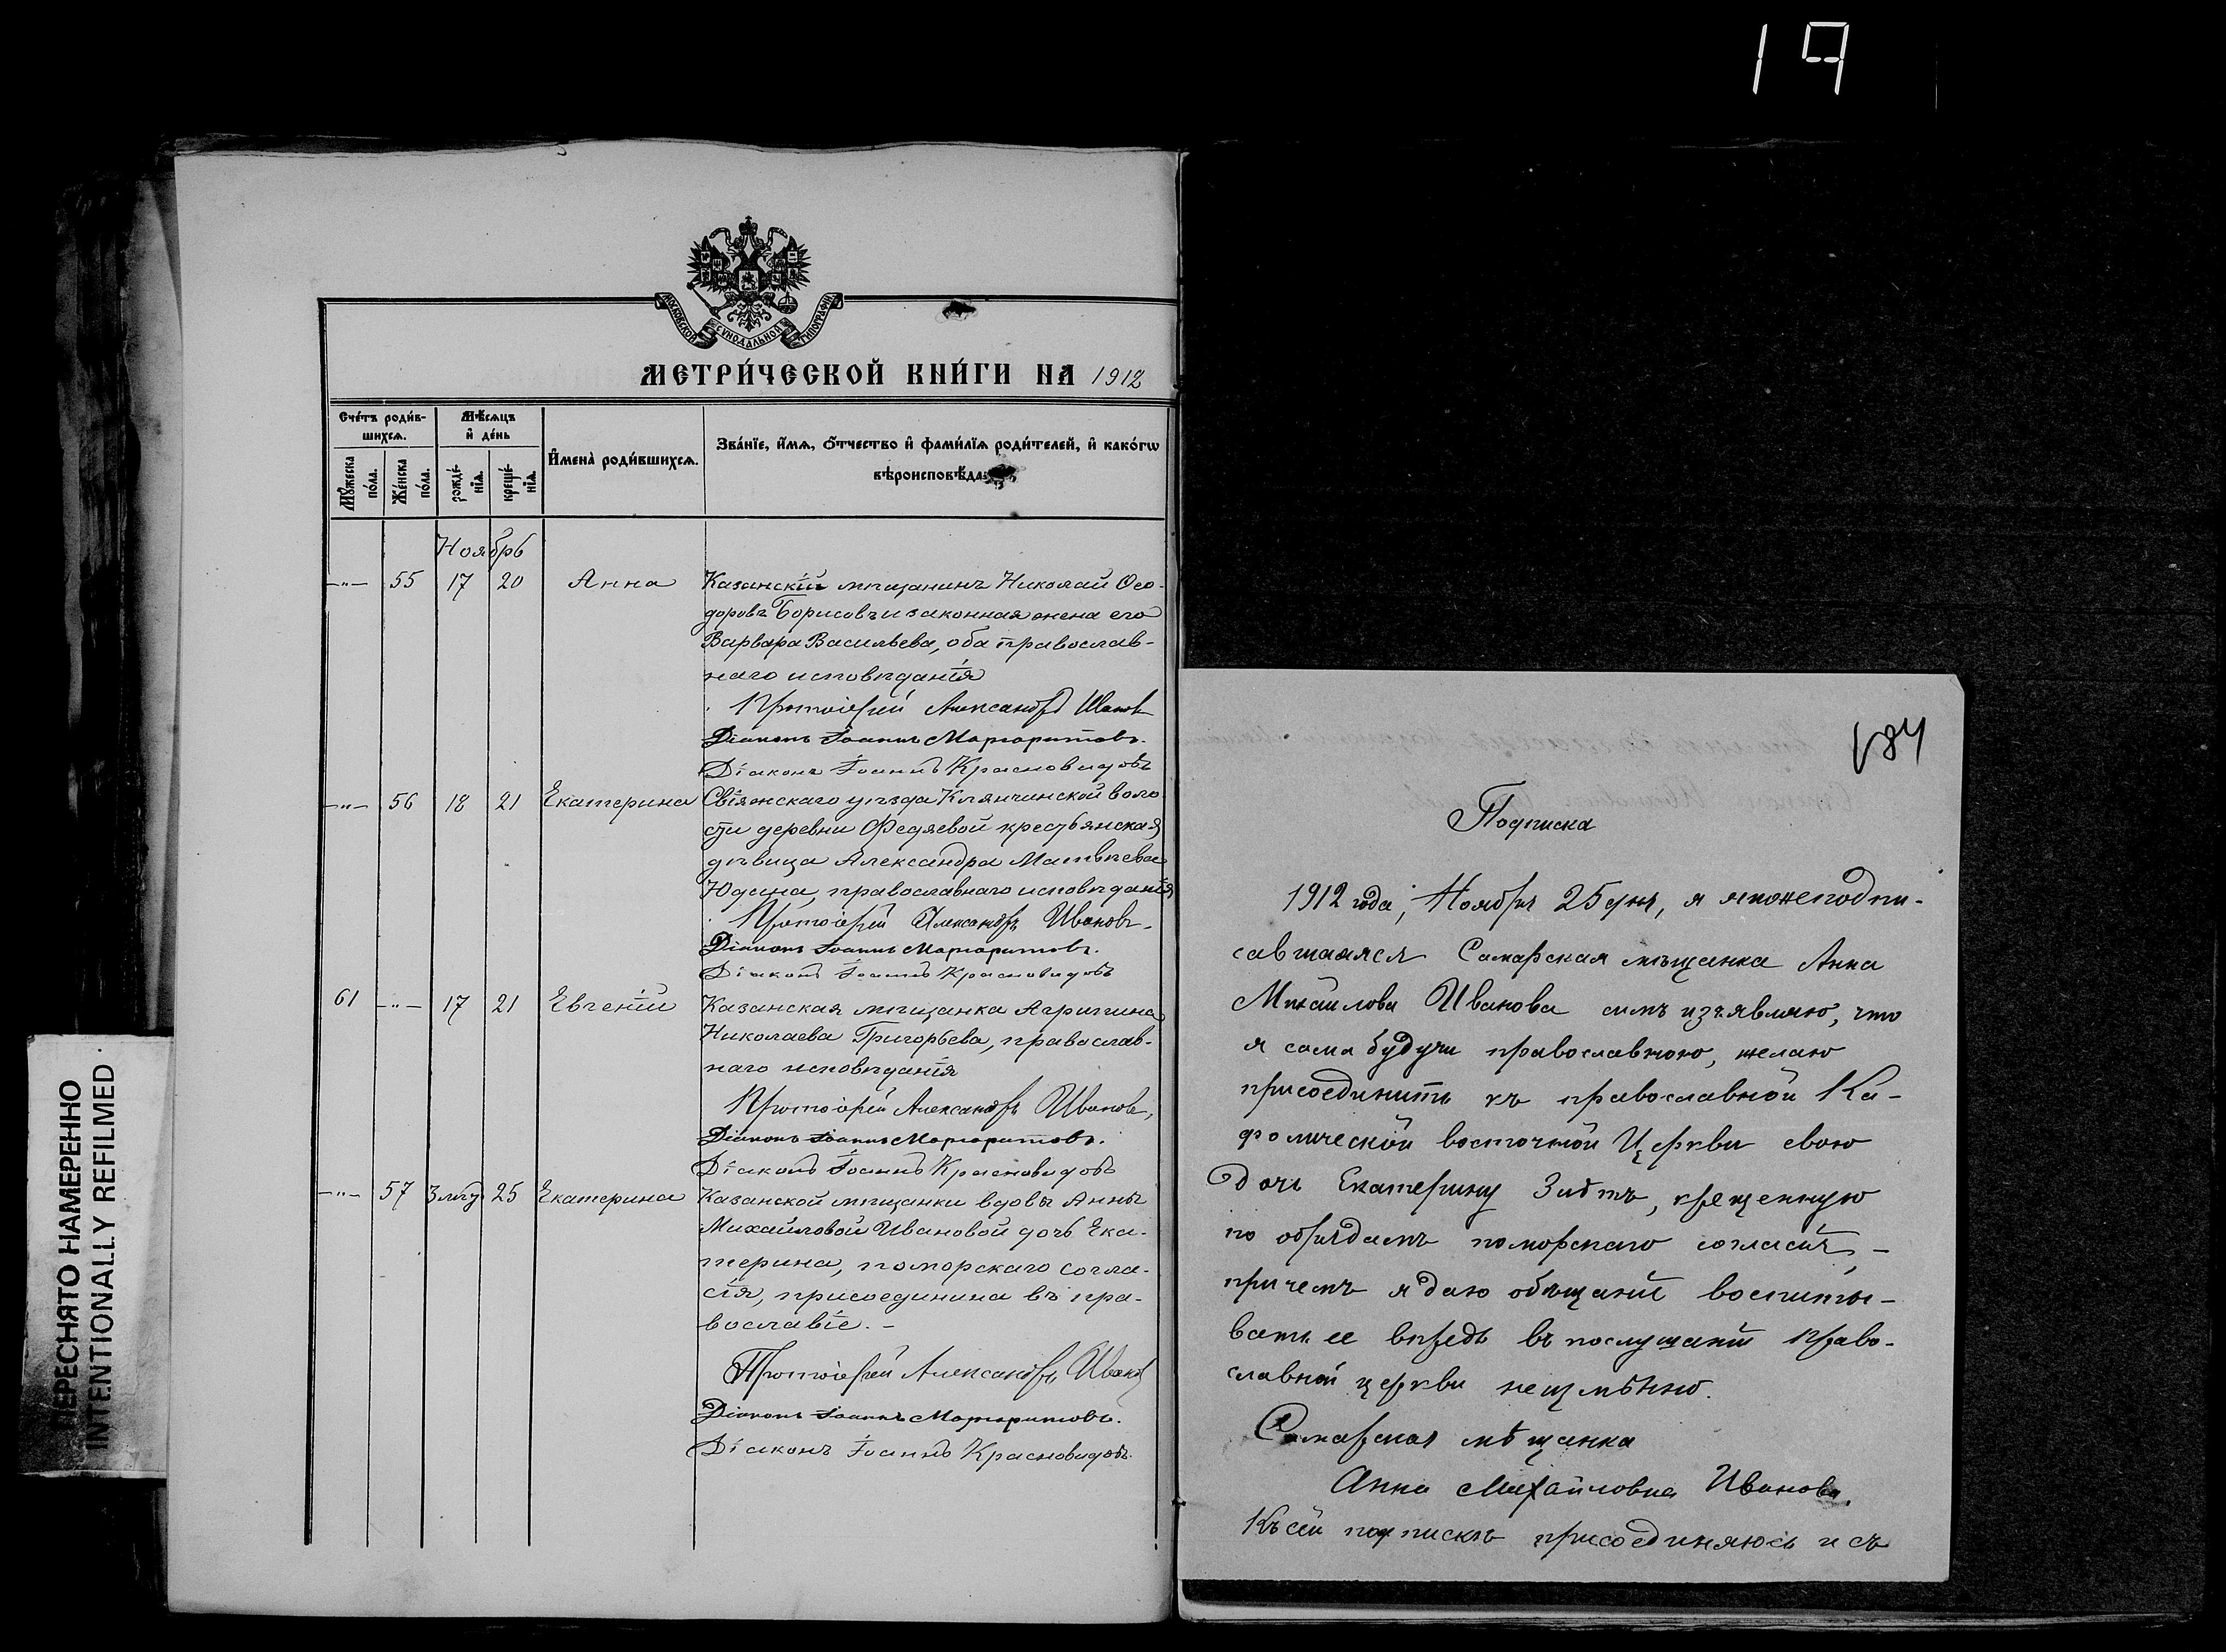 19
ПЕРЕСНЯТО НАМЕРЕННО
INTENTIONALLY REFILMED.
МОСКОВСКОЙ СУНОДАЛЬНОЙ ТИПОГРАФІИ
МЕТРИ́ЧЕСКОЙ КНИ́ГИ НА 1912
Сче́тъ роди́в-
шихсѧ.
Мꙋ́жеска по́ла.
Же́нска по́ла.
Мѣ́сѧцъ
и҆ де́нь
рожде́-
нїѧ.
креще́-
нїѧ.
И҆мена̀ роди́вшихсѧ.
Зва́нїе, и҆́мѧ, ѻ҆́тчество и҆ фами́лїѧ роди́телей, и҆ како́гѡ
вѣроисповѣ́да
Ноябрь
-"- 55 17 20 Анна Казанскій мѣщанинъ Николай Ѳео-
доровъ Борисовъ и законная жена его
Варвара Васильева, оба православ-
наго исповѣданія
Протоіерей Александръ Ивановъ
Діаконъ Іоаннъ Маргаритовъ.
Діаконъ Іоаннъ Красновидовъ
-"- 56 18 21 Екатерина Свіяжскаго уѣзда Клянчинской воло
сти деревни Федяевой крестьянская
дѣвица Александра Матвѣева
Юдина, православнаго исповѣданія
Протоіерей Александръ Ивановъ.
Діаконъ Іоаннъ Маргаритовъ.
Діаконъ Іоаннъ Красновидовъ
61 -"- 17 21 Евгеній Казанская мѣщанка Агрипина
Николаева Григорьева, православ-
наго исповѣданія
Протоіерей Александръ Ивановъ,
Діаконъ Іоаннъ Маргаритовъ.
Діаконъ Іоаннъ Красновидовъ
-"- 57 25 Екатерина Казанской мѣщанки вдовы Анны
Михайловой Ивановой дочь Ека-
терина, поморскаго согла-
сія, присоединина въ пра-
вославіе.-
Протоіерей Александръ Ивановъ
Діаконъ Іоаннъ Маргаритовъ.
Діаконъ Іоаннъ Красновидовъ.
Подписка
1912 года, Ноября 25 дня, я нижеподпи-
савшаяся Самарская мѣщанка Анна
Михайлова Иванова симъ изъявляю, что
я сама будучи православною, желаю
присоединить къ православной Ка-
фолической восточной Церкви свою
дочь Екатерину крещенную
по обрядамъ поморскаго согласія,-
причемъ я даю обѣщаніе воспиты-
вать ее впредь въ послушаніи право-
славной церкви неизмѣнно.
Самарская мѣщанка
Анна Михайловна Иванова.
Къ сей подпискѣ присоединяюсь и съ